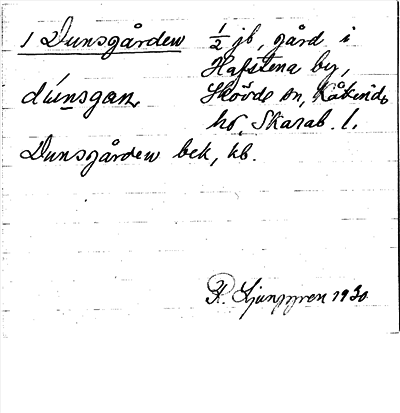 1 Dunsgården ½ jb, gård i
Hafstena by,
dúnsgan, Skövde sn, Kåkinds
hd, Skarab. l.
Dunsgården bek, kb.
R. Ljunggren 1930